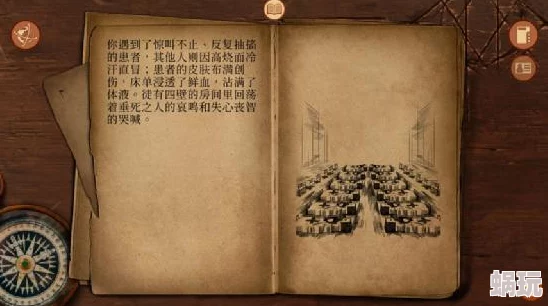 你遇到了惊叫不止、反复抽搐
的患者，其他人则因高烧而冷
汗直冒；患者的皮肤布满创
伤，床单浸透了鲜血，沾满了
体液。徒有四壁的房间里回荡
着垂死之人的哀鸣和失心丧智
的哭喊。
蜗玩